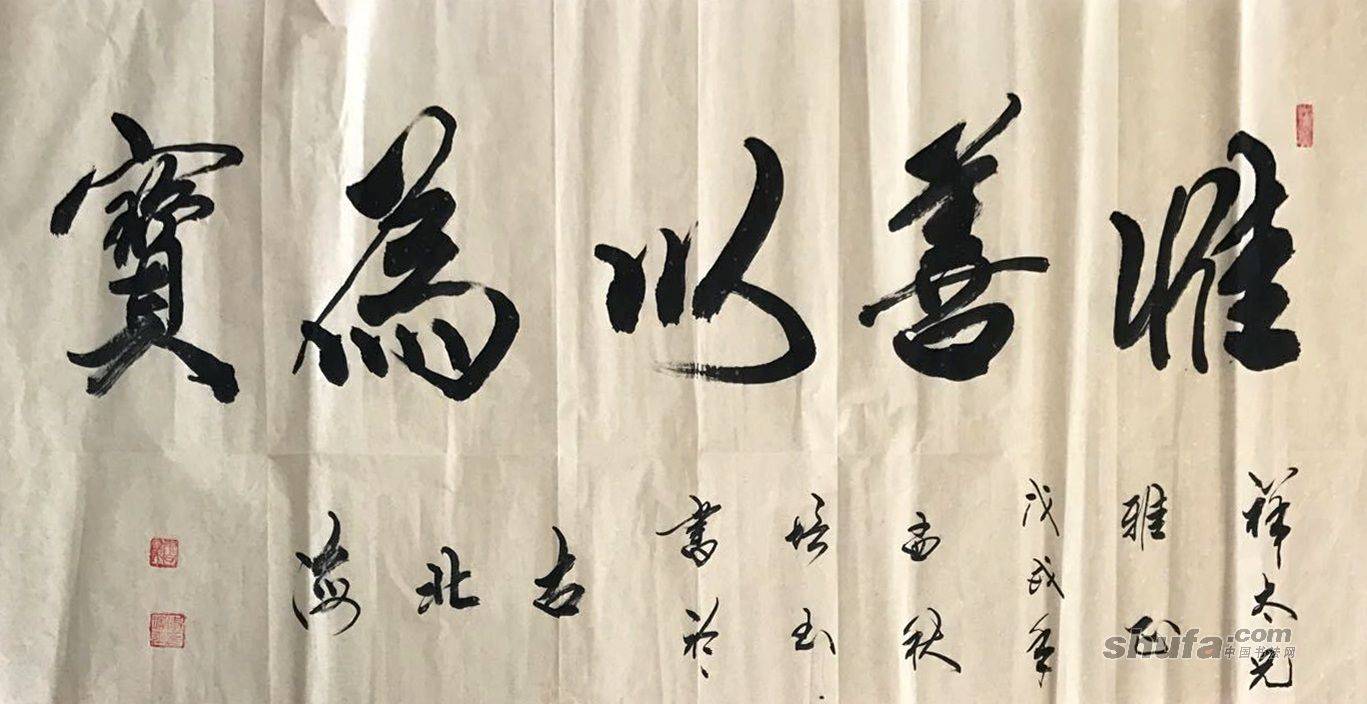 惟善以為寶
祥大兄
雅正
戊戌年
孟秋
培玉
書於
古
北
海
shufa.com
中国书法网